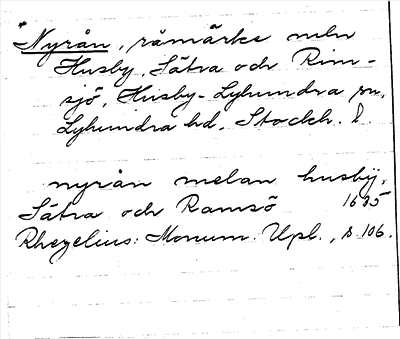 *Nyrån, råmärke meln
Husby, Sätra och Rim-
sjö, Husby-Lyhundra sn,
Lyhundra hd, Stockh. l.
nyrån melan husbÿ,
Sätra och Ramsö 1635
Rhezelius: Monum. Upl., s. 106.